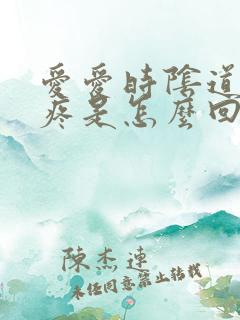 愛愛時陰道
疼是怎麼回
陳杰連
未经同意禁止转载